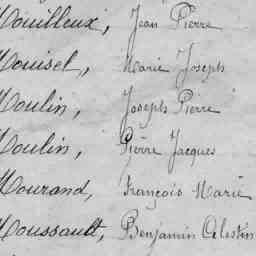 Mouilleux, Jean Pierre
Mouisel, Marie Joseph
Moulin, Joseph Pierre
Moulin, Pierre Jacques
Mourand, François Marie
Moussault, Benjamin Célestin